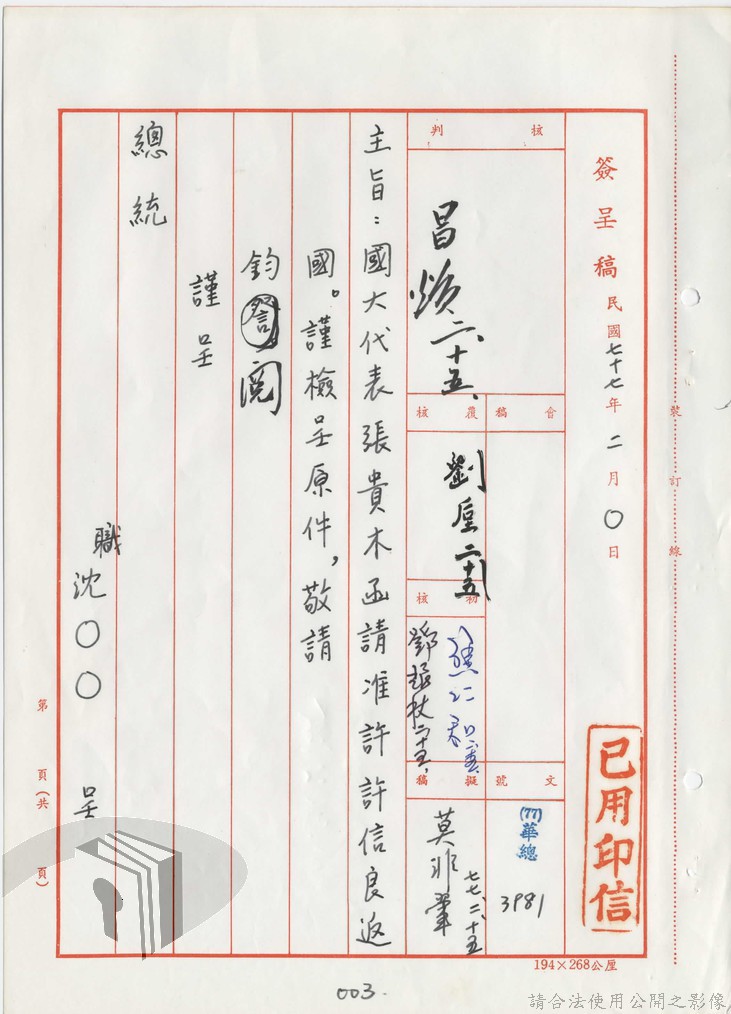 簽呈稿 民國七十七年二月〇日
裝訂線
核判
昌煥 二、十五、
會稿
覆核
劉垕 二十五
初核
鄧振杖 二、十五、
文號
(77)華總
3981
擬稿
莫非葷
七七、二、十五
主旨：國大代表張貴木函請准許許信良返
國。謹檢呈原件，敬請
鈞詧閱
謹呈
總統
職沈〇〇 呈
第 頁(共 頁)
已用印信
194×268公厘
003.
請合法使用公開之影像